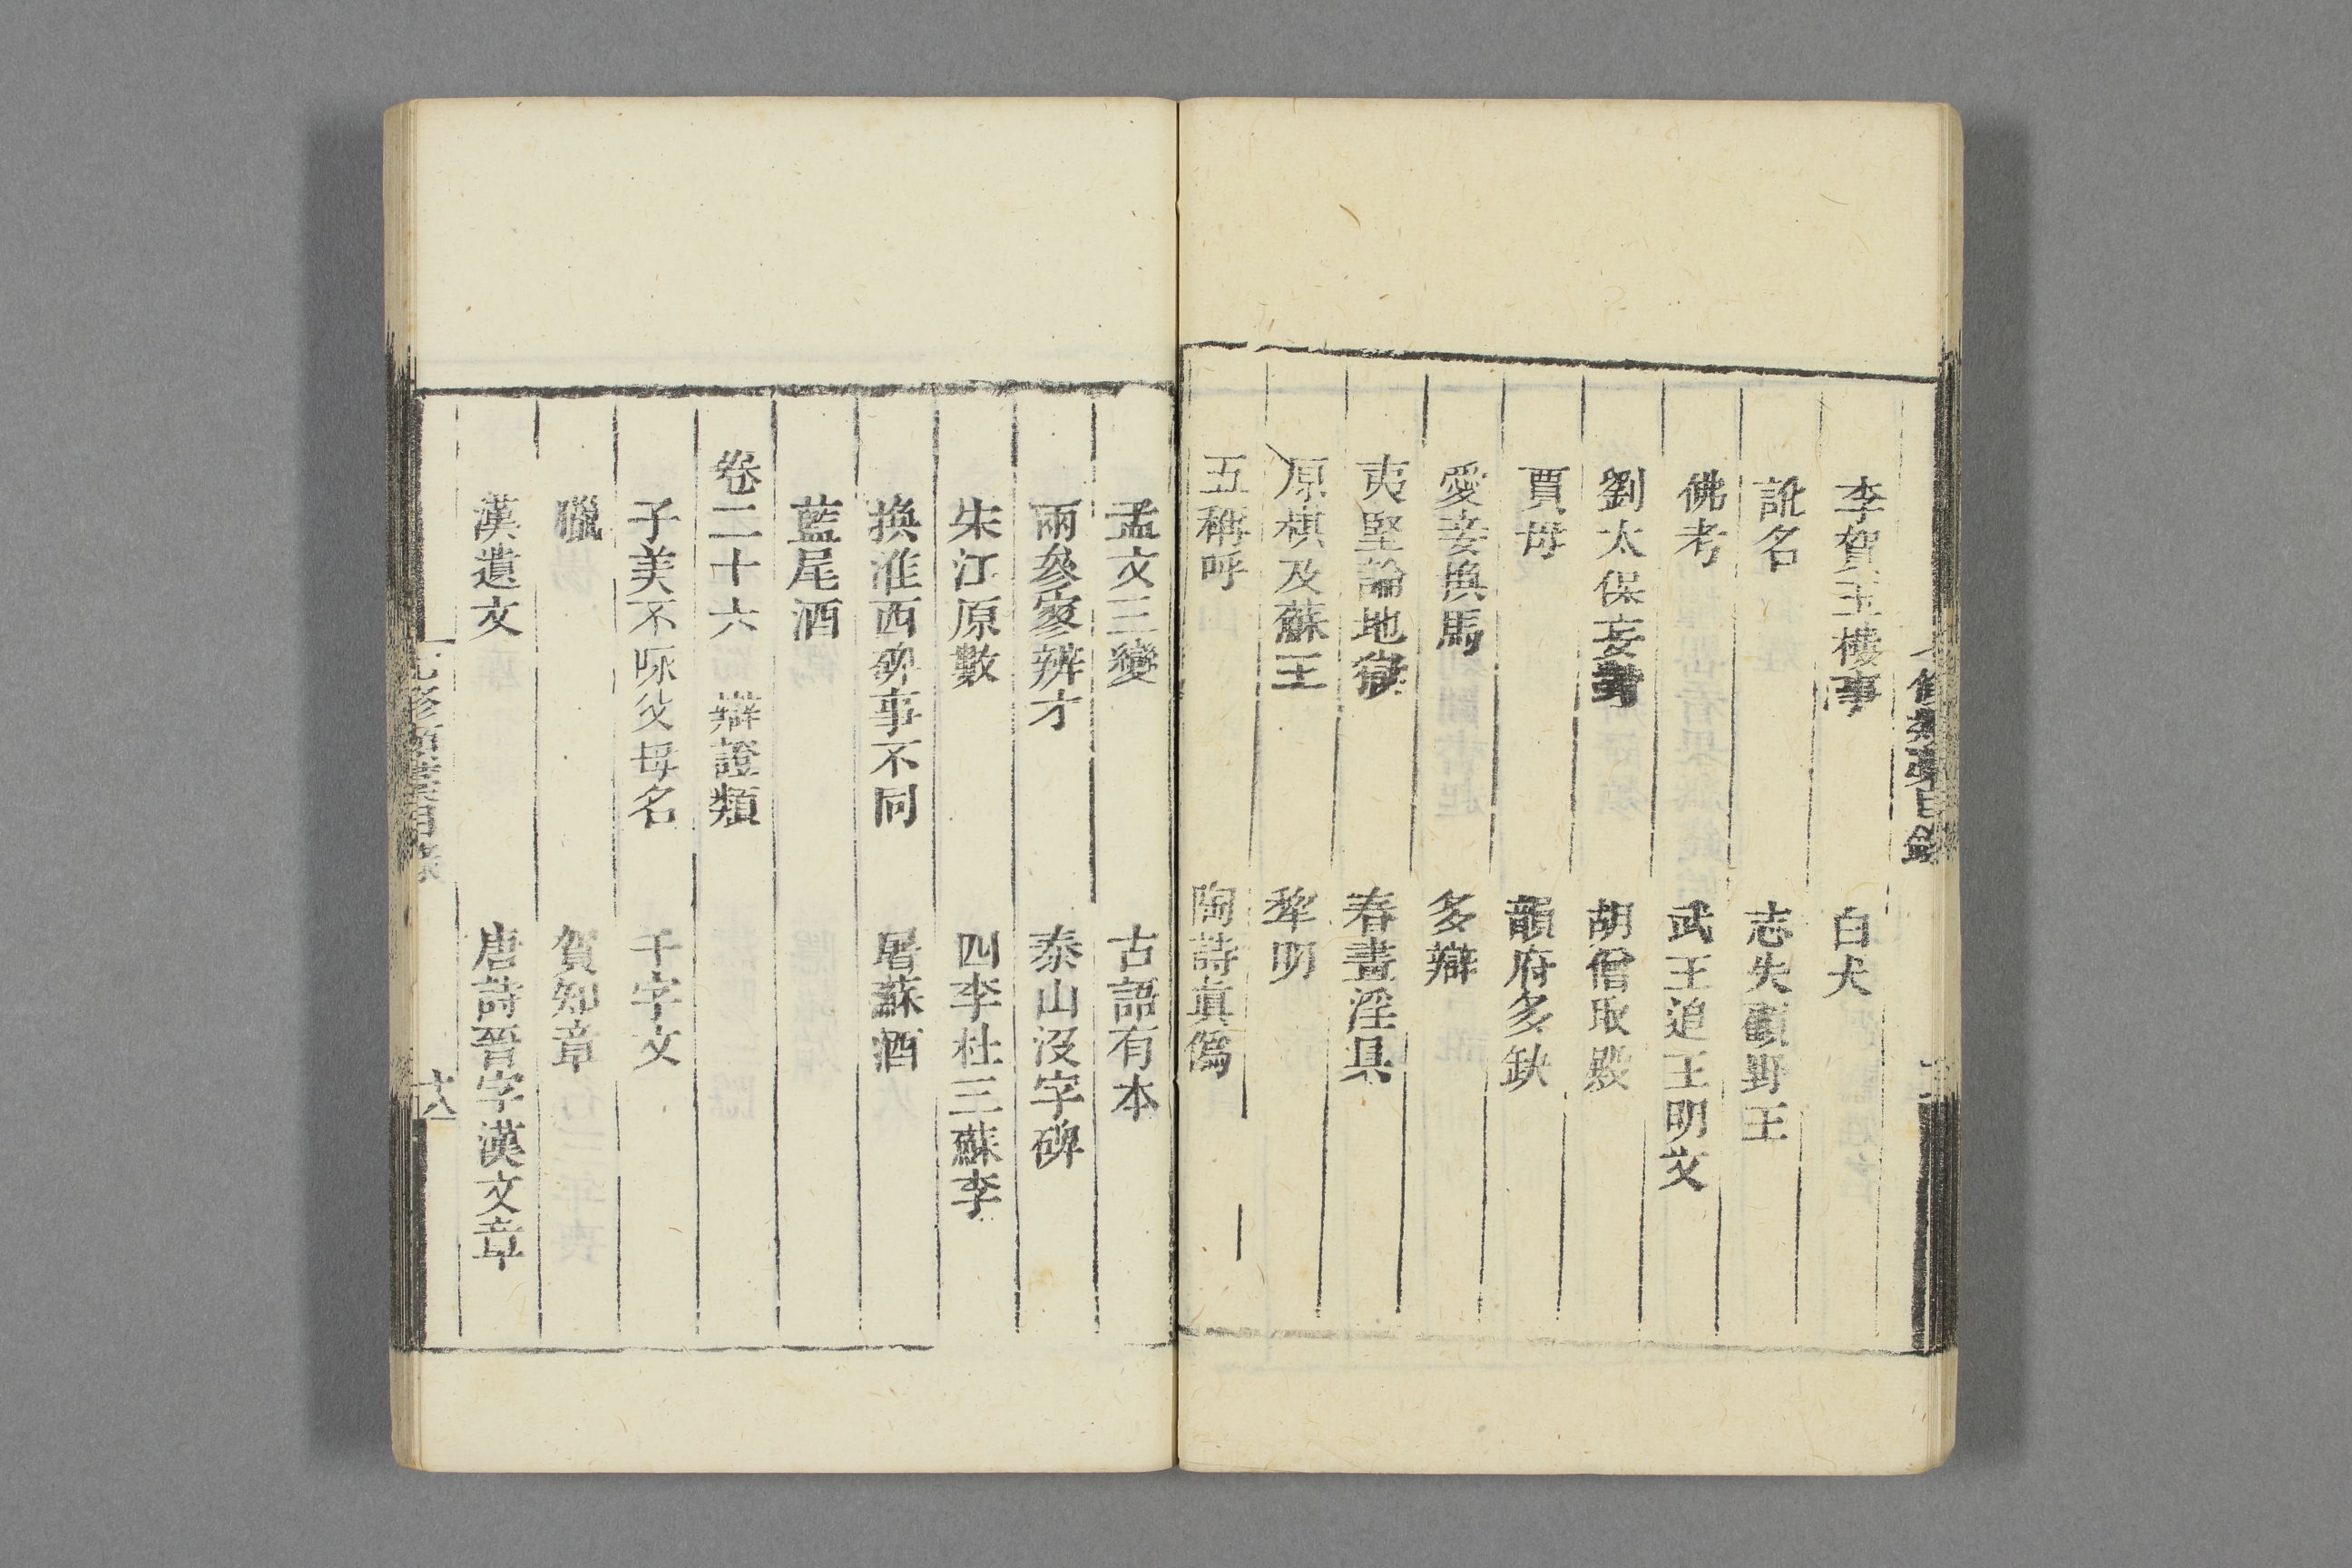 李賀玉樓事　白犬
訛名　志失顧野王
佛考　武王追王明文
劉太保妄對　胡僧取殿
賈母　韻府多缺
愛妾換馬　多辯
夷堅論地獄　春畫淫具
原棋及蘇王　犂明
五稱呼　陶詩眞僞
孟文三變　古語有本
兩參寥辨才　泰山沒字碑
朱江原數　四李杜三蘇李
換淮西碑事不同　屠蘇酒
藍尾酒
卷二十六　辯證類
子美不咏父母名　千字文
臘　賀知章
漢遺文　唐詩晉字漢文章
七修類藁目錄　十八